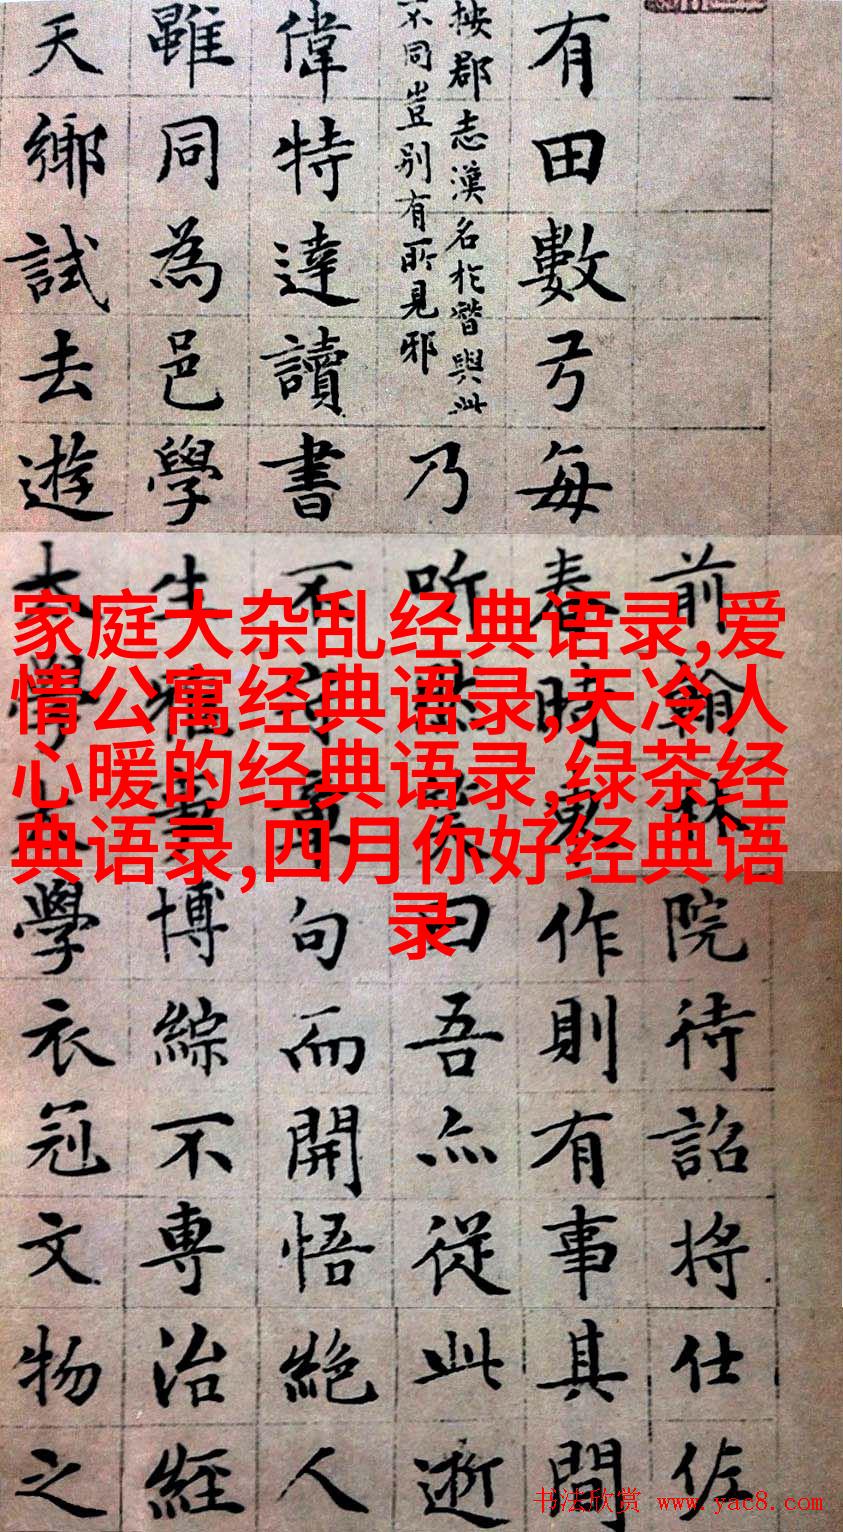 家庭大杂乱经典语录,爱
情公寓经典语录,天冷人
心暖的经典语录,绿茶经
典语录,四月你好经典语
录
前翰林院待詔將仕佐
有田數亐每春時東作則有事其間
按郡志漢名於與此
不同豈別有所見邪
乃听曰吾亦從此逝
偉特達讀書不守章句而開悟絕人
雖同為邑學生博綜不專治經
天鄉試去遊太學太學衣冠文物之
书法欣赏 www.yac8.com